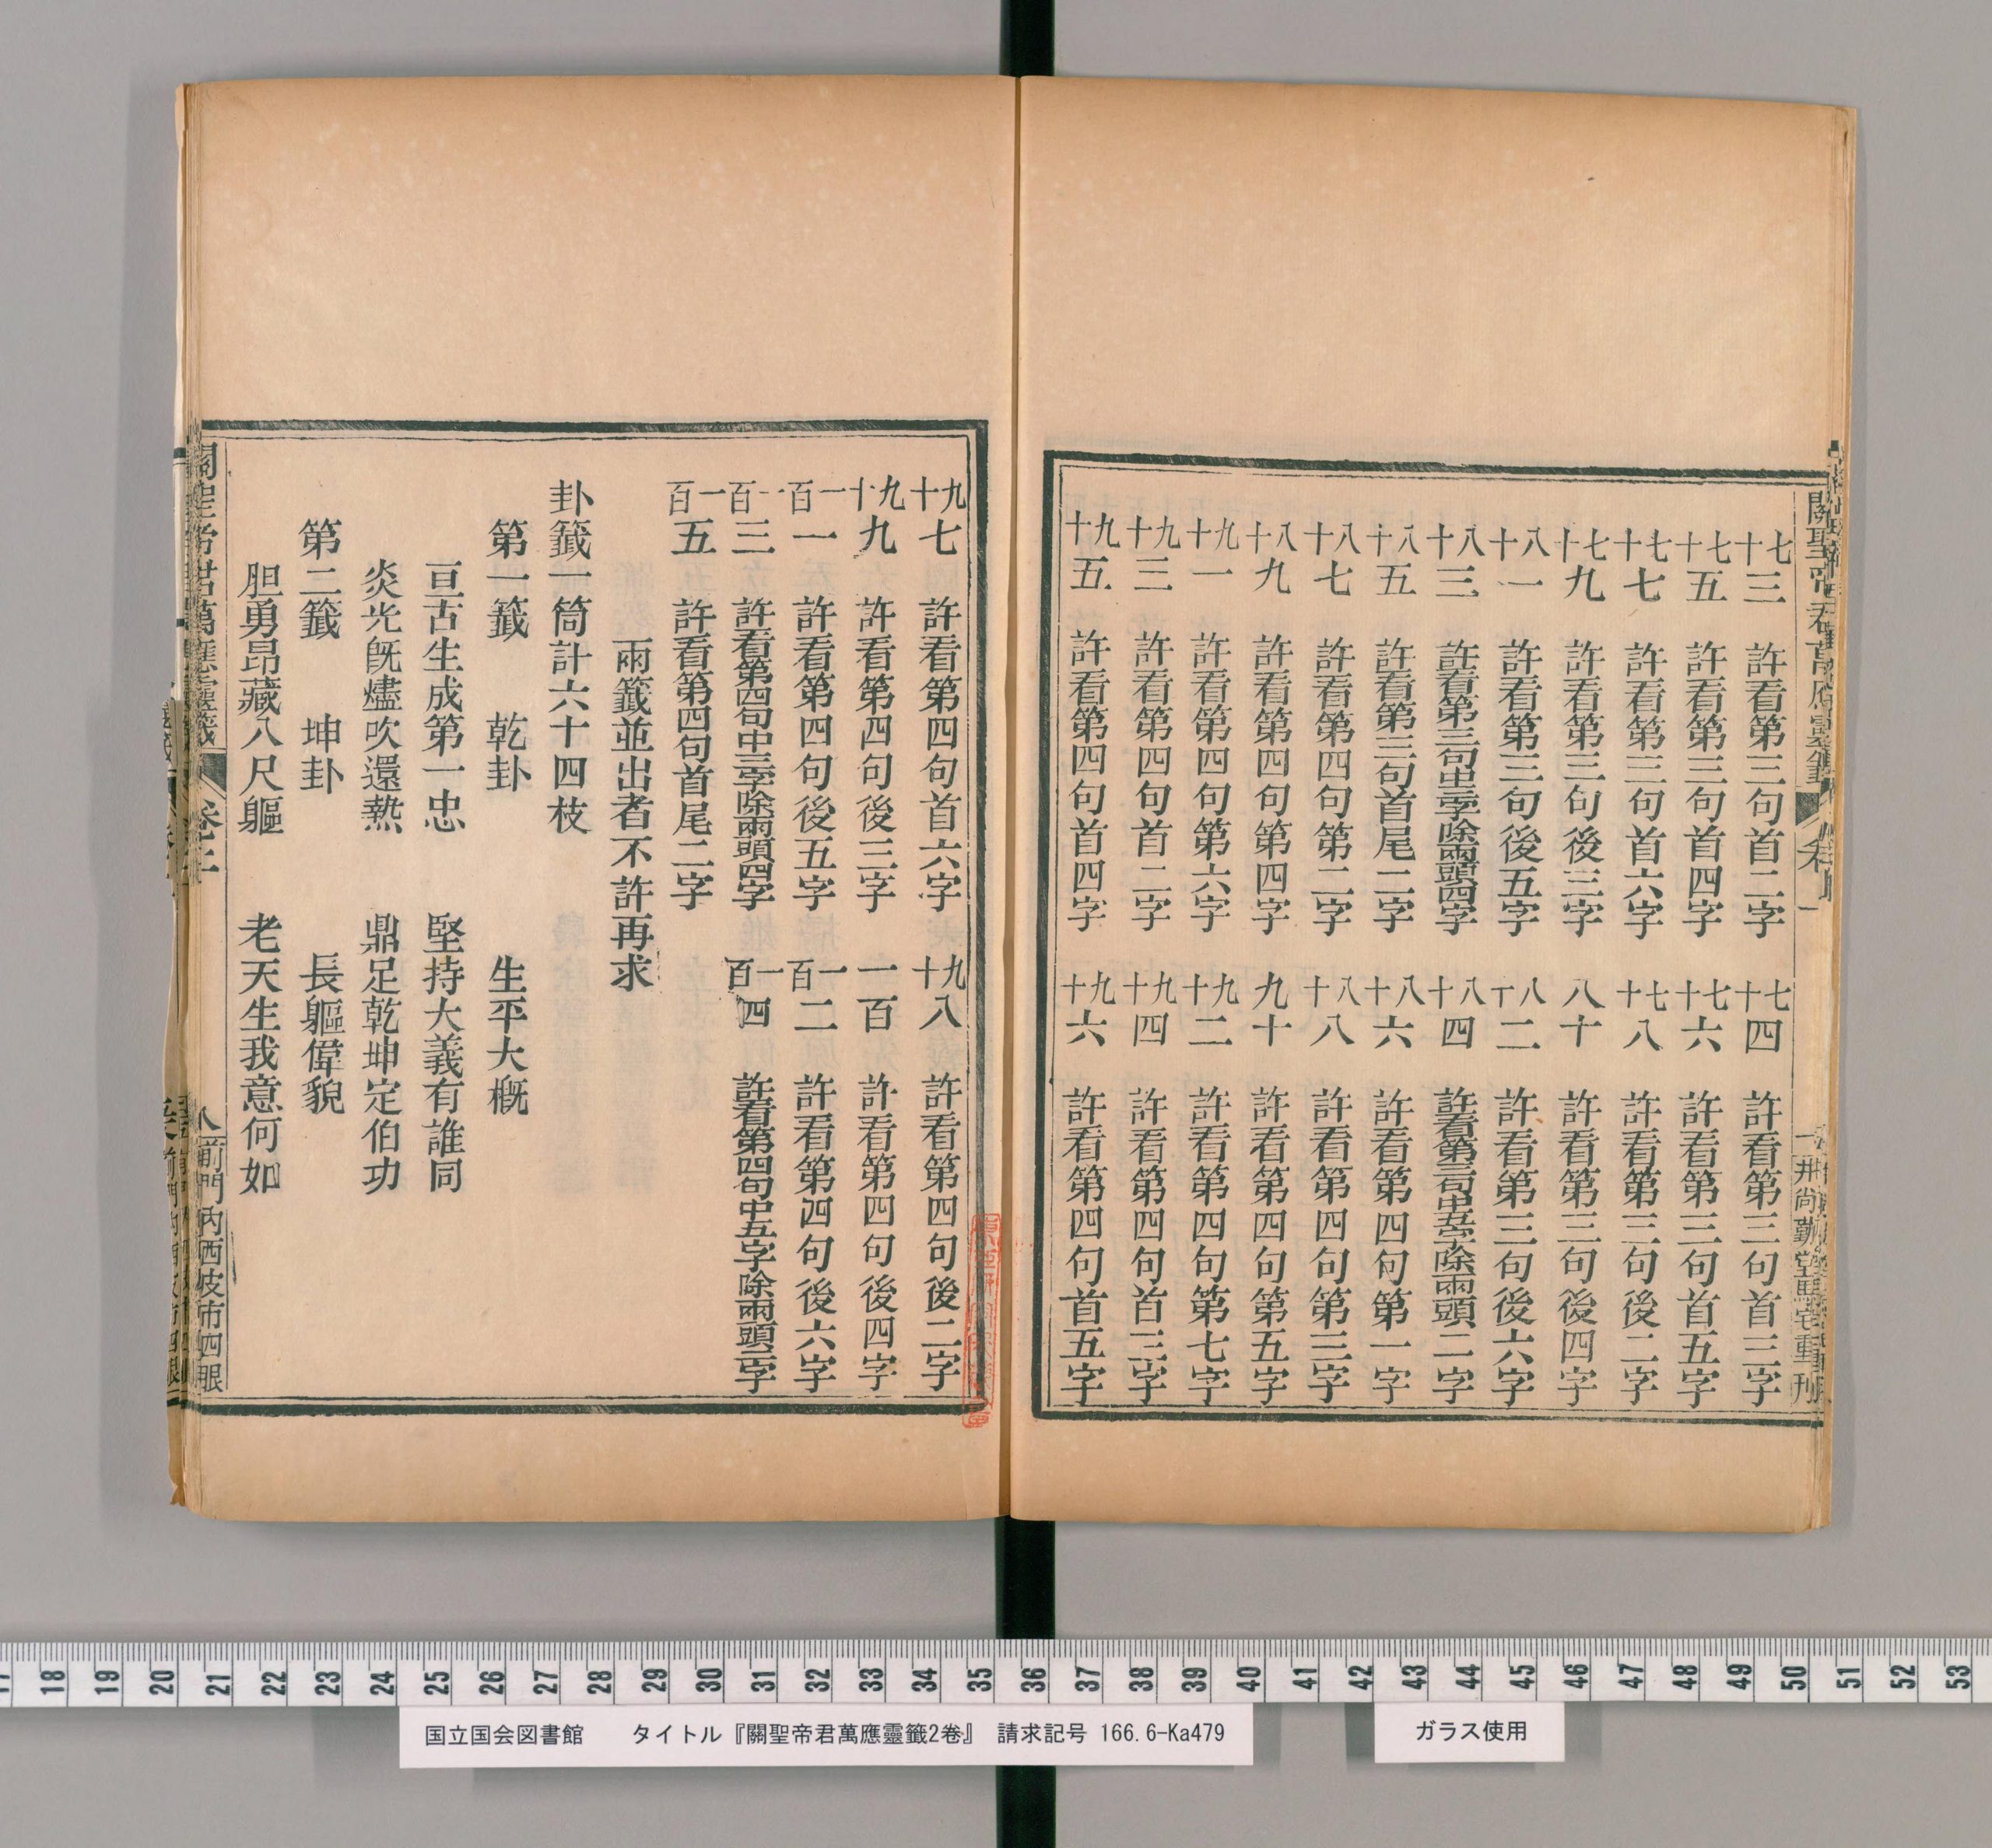 關聖帝君萬應靈籤
七十三　許看第三句首二字　七十四　許看第三句首三字
七十五　許看第三句首四字　七十六　許看第三句首五字
七十七　許看第三句首六字　七十八　許看第三句後二字
七十九　許看第三句後三字　八十　許看第三句後四字
八十一　許看第三句後五字　八十二　許看第三句後六字
八十三　許看第三句中三字除兩頭四字　八十四　許看第三句中五字除兩頭二字
八十五　許看第三句首尾二字　八十六　許看第四句第一字
八十七　許看第四句第二字　八十八　許看第四句第三字
八十九　許看第四句第四字　九十　許看第四句第五字
九十一　許看第四句第六字　九十二　許看第四句第七字
九十三　許看第四句首二字　九十四　許看第四句首三字
九十五　許看第四句首四字　九十六　許看第四句首五字
九十七　許看第四句首六字　九十八　許看第四句後二字
九十九　許看第四句後三字　一百　許看第四句後四字
一百一　許看第四句後五字　一百二　許看第四句後六字
一百三　許看第四句中三字除兩頭四字　一百四　許看第四句中五字除兩頭二字
一百五　許看第四句首尾二字
兩籤並出者不許再求
卦籤一筒計六十四枝
第一籤　乾卦　生平大概
亘古生成第一忠　堅持大義有誰同
炎光既燼吹還熱　鼎足乾坤定伯功
第二籤　坤卦　長軀偉貌
胆勇昂藏八尺軀　老天生我意何如
關聖帝君萬應靈籤　卷二　八　前門內西皮市四眼
17 18 19 20 21 22 23 24 25 26 27 28 29 30 31 32 33 34 35 36 37 38 39 40 41 42 43 44 45 46 47 48 49 50 51 52 53
国立国会図書館　タイトル『關聖帝君萬應靈籤2卷』　請求記号 166.6-Ka479
ガラス使用